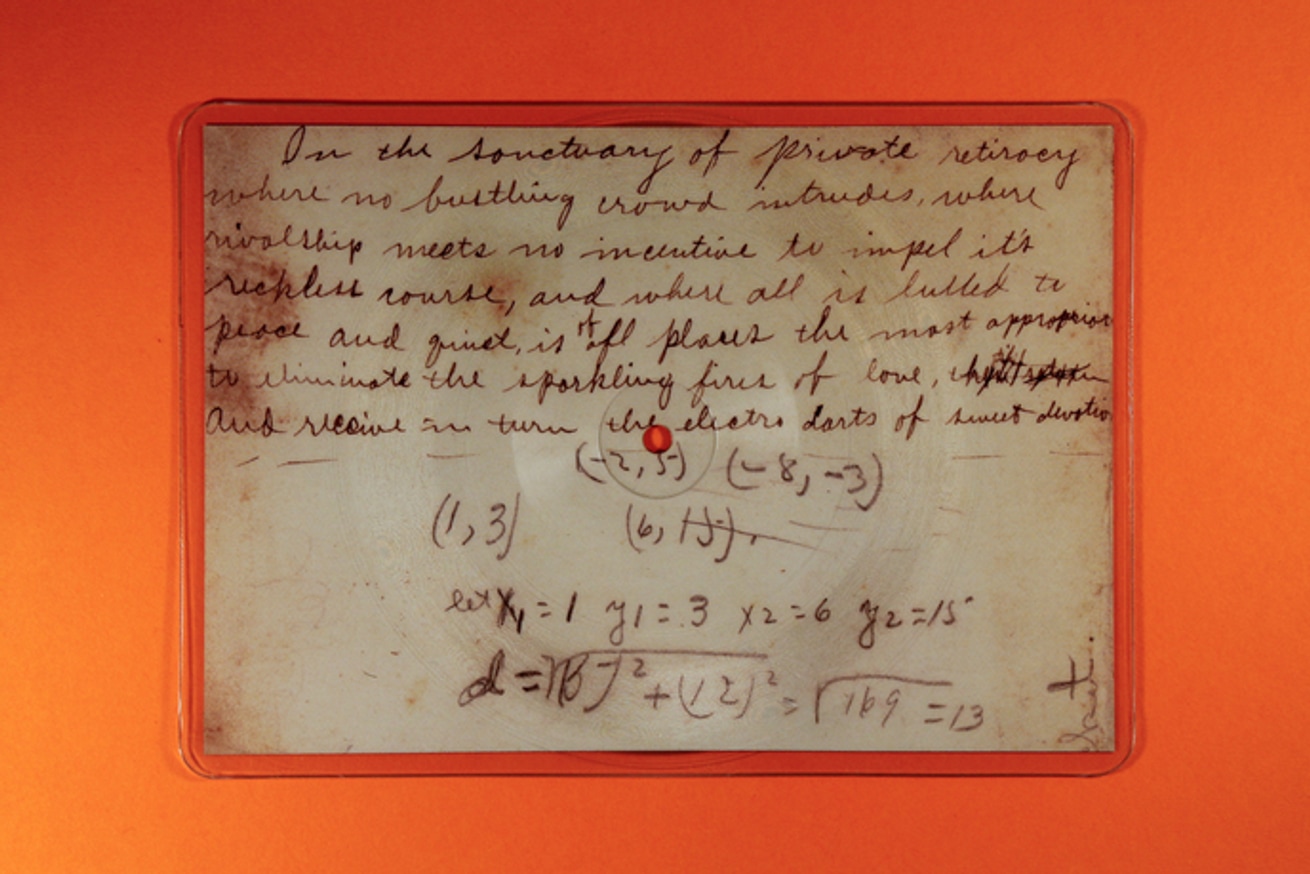 In the sanctuary of private retiracy
where no bustling crowd intrudes, where
rivalship meets no incentive to impel it's
reckless course, and where all is lulled to
peace and quiet, is of all places the most appropriat
to eliminate the sparkling fires of love,
and receive in turn the electro darts of sweet devotio
(-2, 5) (-8, -3)
(1, 3) (6, 15).
let x1 = 1 y1 = 3 x2 = 6 y2 = 15
d = √(5)² + (12)² = √169 = 13